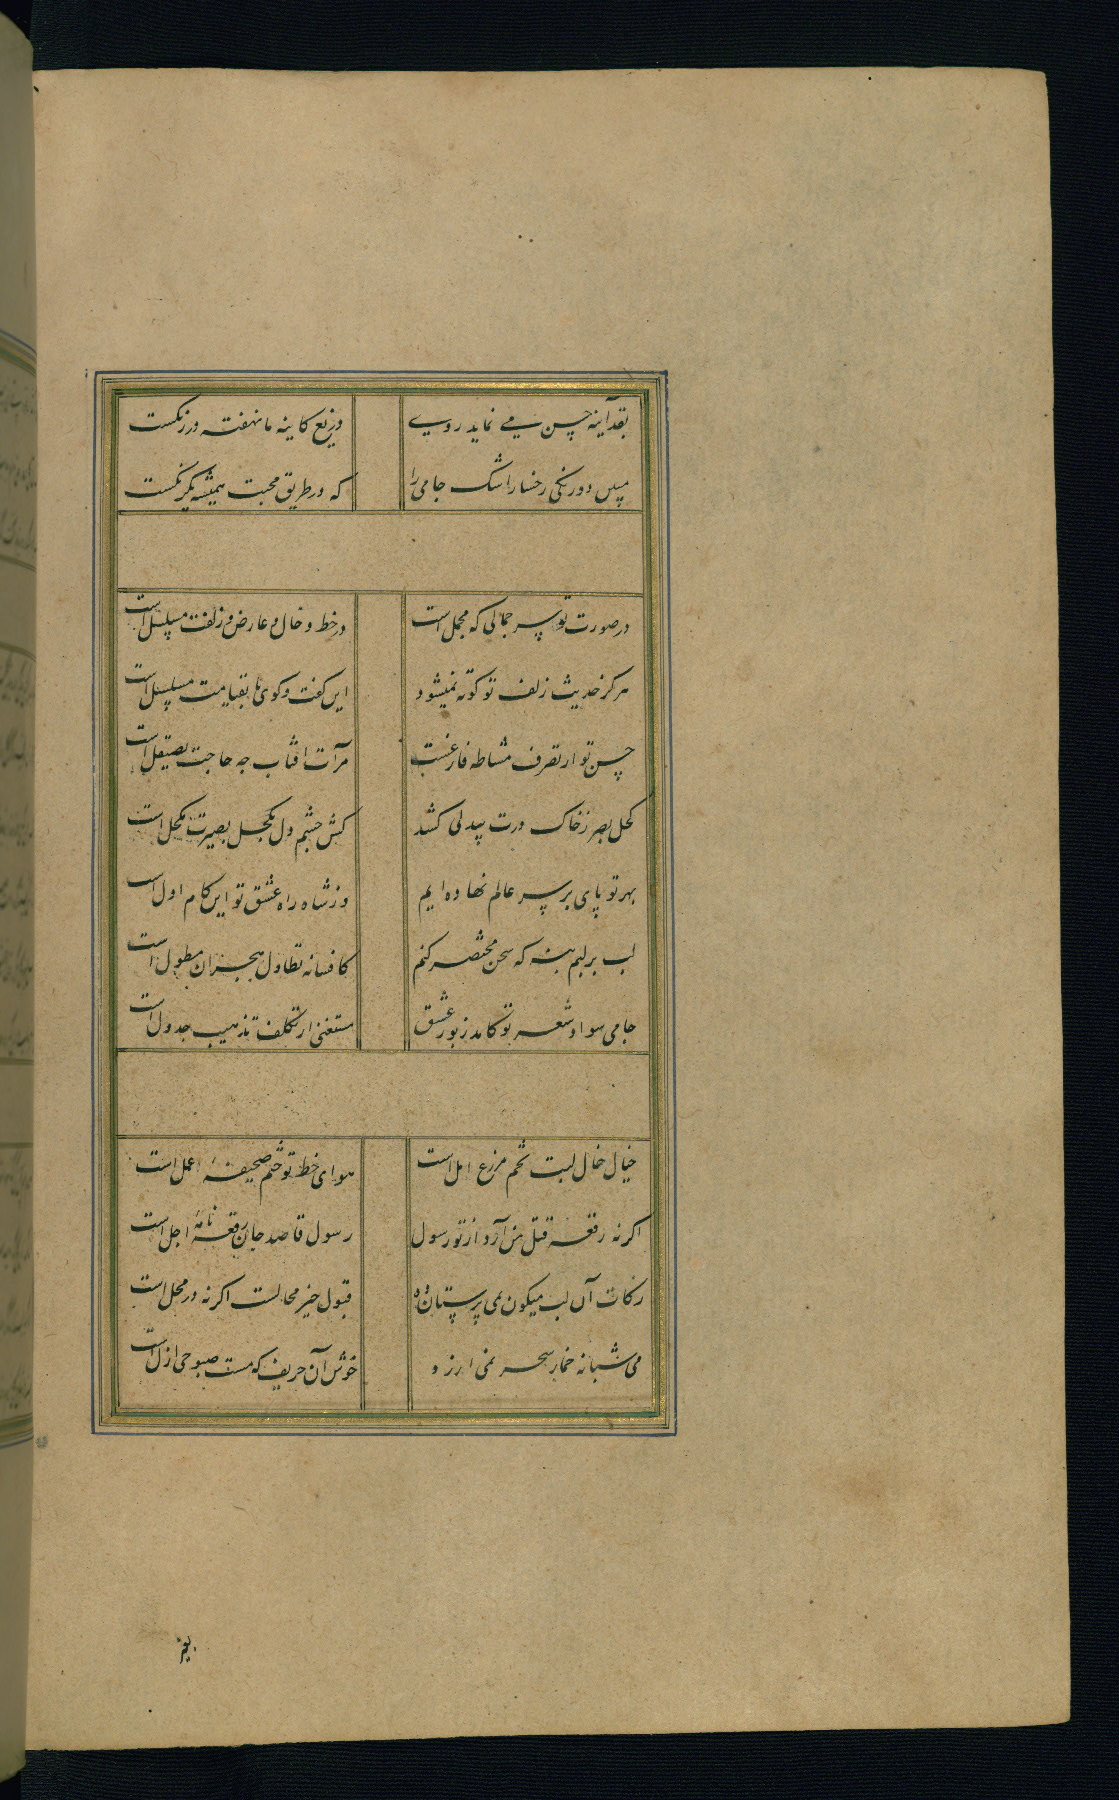 بقدر آینه حسن می نماید روی دریغ کاینه ما نهفته در زنگست
مبین دورنگی رخسار اشک جامی را که در طریق محبت همیشه یکرنگست
در صورت تو سر جمالی که مجمل است در خط و خال و عارض و زلفت مسلسل است
هرگز حدیث زلف تو کوته نمیشود این گفت و گوی تا بقیامت مسلسل است
حسن تو از تصرف مشاطه فارغست مرآت آفتاب چه حاجت بصیقل است
کحل بصر ز خاک درت بیدلی کشد کش چشم دل بکحل بصیرت مکحل است
بهر تو پای بر سر عالم نهاده ایم وز شاه راه عشق تو این کام اول است
لب بر لبم بنه که سخن مختصر کنم کافسانه تطاول هجران مطول است
جامی سواد شعر تو کامد زبور عشق مستغنی از تکلف تذهیب جدول است
خیال خال لبت تخم مزرع امل است هوای خط تو ختم صحیفه عمل است
اگر نه رقعه قتل من آرد از تو رسول رسول قاصد جان رقعه نامه اجل است
زکات آن لب میگون بمی پرستان ده قبول خیر محالست اگر نه در محل است
می شبانه خمار سحر نمی ارزد خوش آن حریف که مست صبوحی ازل است